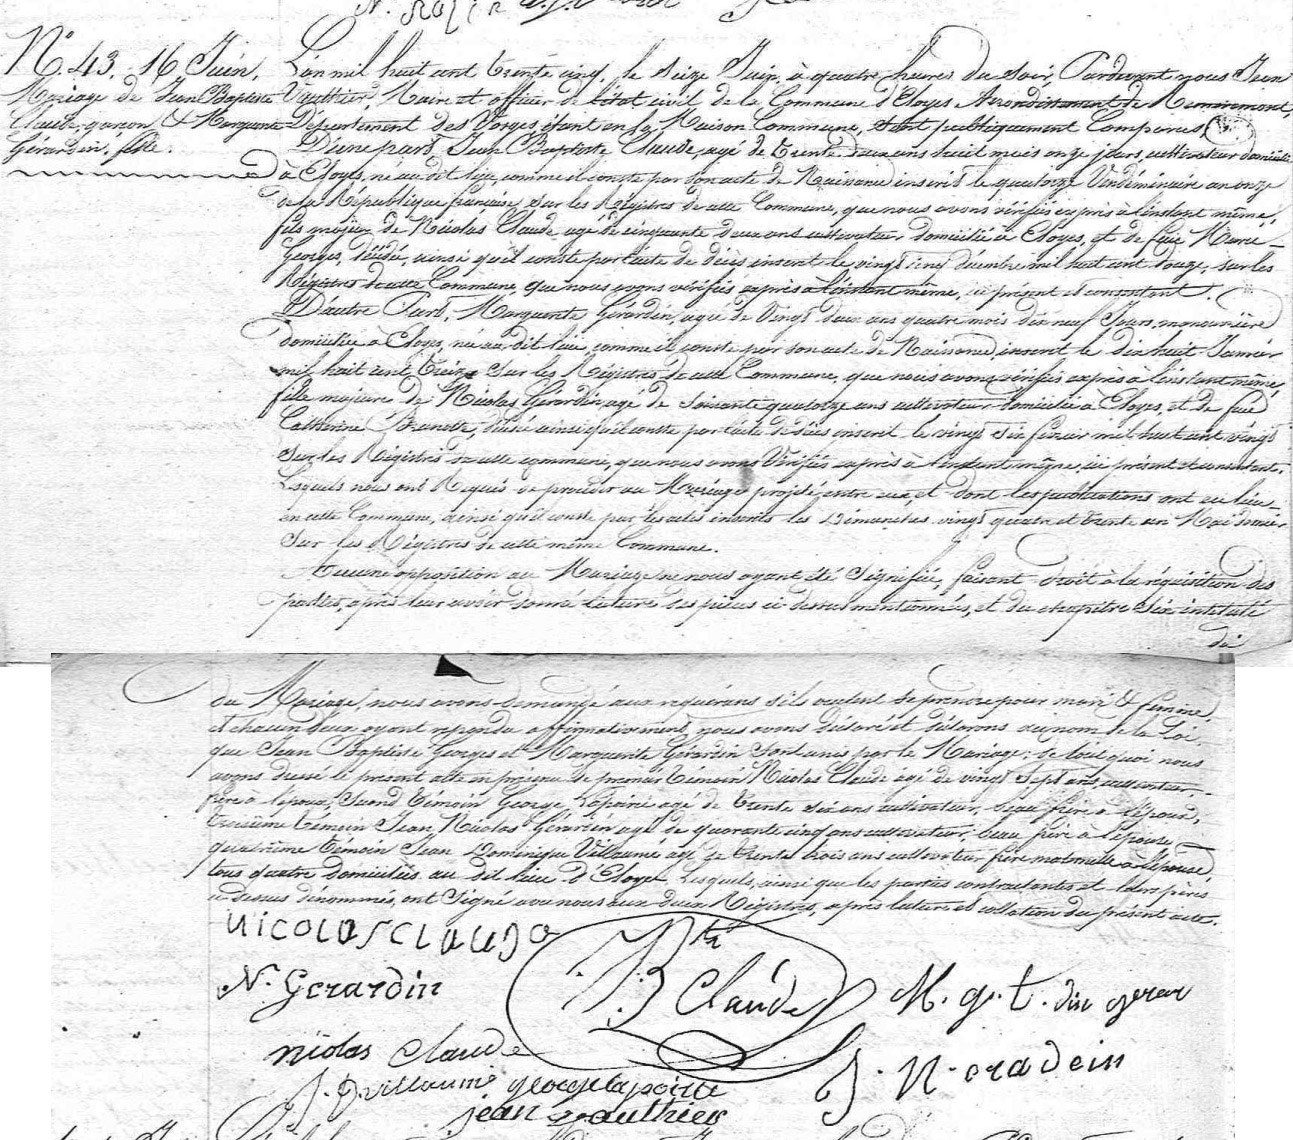 N° 43. 16 Juin.
Mariage de Jean Baptiste
Claude, garçon, & Marguerite
Gérardin, fille.
L'an mil huit cent trente cinq, le seize Juin, à quatre heures du soir, Pardevant nous Jean
Vauthier, Maire et officier de l'état civil de la Commune d'Eloyes Arrondissement de Remiremont,
Département des Vosges étant en la Maison Commune, sont publiquement Comparus,
D'une part, Jean Baptiste Claude, agé de trente deux ans huit mois onze jours, cultivateur domicilié
à Eloyes, né au dit lieu, comme il conste par son acte de Naissance inscrit le quatorze Vendémiaire an onze
de la République française, sur les Registres de cette Commune, que nous avons vérifiés exprès à l'instant même,
fils majeur de Nicolas Claude agé de cinquante deux ans cultivateur domicilié à Eloyes, et de feue Marie
Georges, décédée, ainsi qu'il conste par l'acte de décès inscrit le vingt cinq décembre mil huit cent douze, sur les
Régistres de cette Commune que nous avons vérifiés exprès à l'instant même, ci présent et consentant.
D'autre Part, Marguerite Gérardin, agée de Vingt deux ans quatre mois dix neuf Jours, manouvrière
domiciliée à Eloyes, née au dit lieu, comme il conste par son acte de Naissance, inscrit le dix huit Janvier
mil huit cent treize sur les Régistres de cette Commune, que nous avons vérifiés exprès à l'instant même,
fille majeure de Nicolas Gérardin, agé de soixante quatorze ans cultivateur domicilié à Eloyes, et de feue
Catherine Brunotte, décédée ainsi qu'il conste par l'acte de décès inscrit le vingt six février mil huit cent vingt
sur les Régistres de cette commune, que nous avons Vérifiés exprès à l'instant même, ici présent et consentant.
Lesquels nous ont Requis de procéder au Mariage projeté entre eux, et dont les publications ont eu lieu
en cette Commune, ainsi qu'il conste par les actes inscrits les Dimanches vingt quatre et trente un Mai dernier
sur les Régistres de cette même Commune.
Aucune opposition au Mariage ne nous ayant été Signifiée, faisant droit à la réquisition des
parties, après leur avoir donné lecture des pièces ci dessus mentionnées, et du chapitre Six intitulé
du
du Mariage, nous avons demandé aux requérans s'ils veulent se prendre pour mari & femme,
et chacun d'eux ayant repondu affirmativement, nous avons déclaré et déclarons au nom de la Loi,
que Jean Baptiste Georges et Marguerite Gérardin sont unis par le Mariage; de tout quoi nous
avons dressé le present acte en présence de premier témoin Nicolas Claude agé de vingt sept ans, cultivateur
frère à l'époux, Second Témoin George Lapointe agé de trente six ans cultivateur, beau frère à l'époux,
troisième témoin Jean Nicolas Gérardin agé de quarante cinq ans cultivateur, beau frère à l'épouse,
quatrième témoin Jean Dominique Villaumé agé de trente trois ans cultivateur frère maternelle à l'épouse,
tous quatre Domiciliés au dit lieu d'Eloyes, Lesquels, ainsi que les parties contractantes et leurs pères
ci dessus dénommés, ont Signé avec nous aux deux Régistres, après lecture et collation du présent acte.
Nicolas Claude
JBte Claude
N. Gerardin
M. g. t. din gerar
nicolas Claude
J. N. eradein
J. D. villaumé george lapointe
jean vauthier